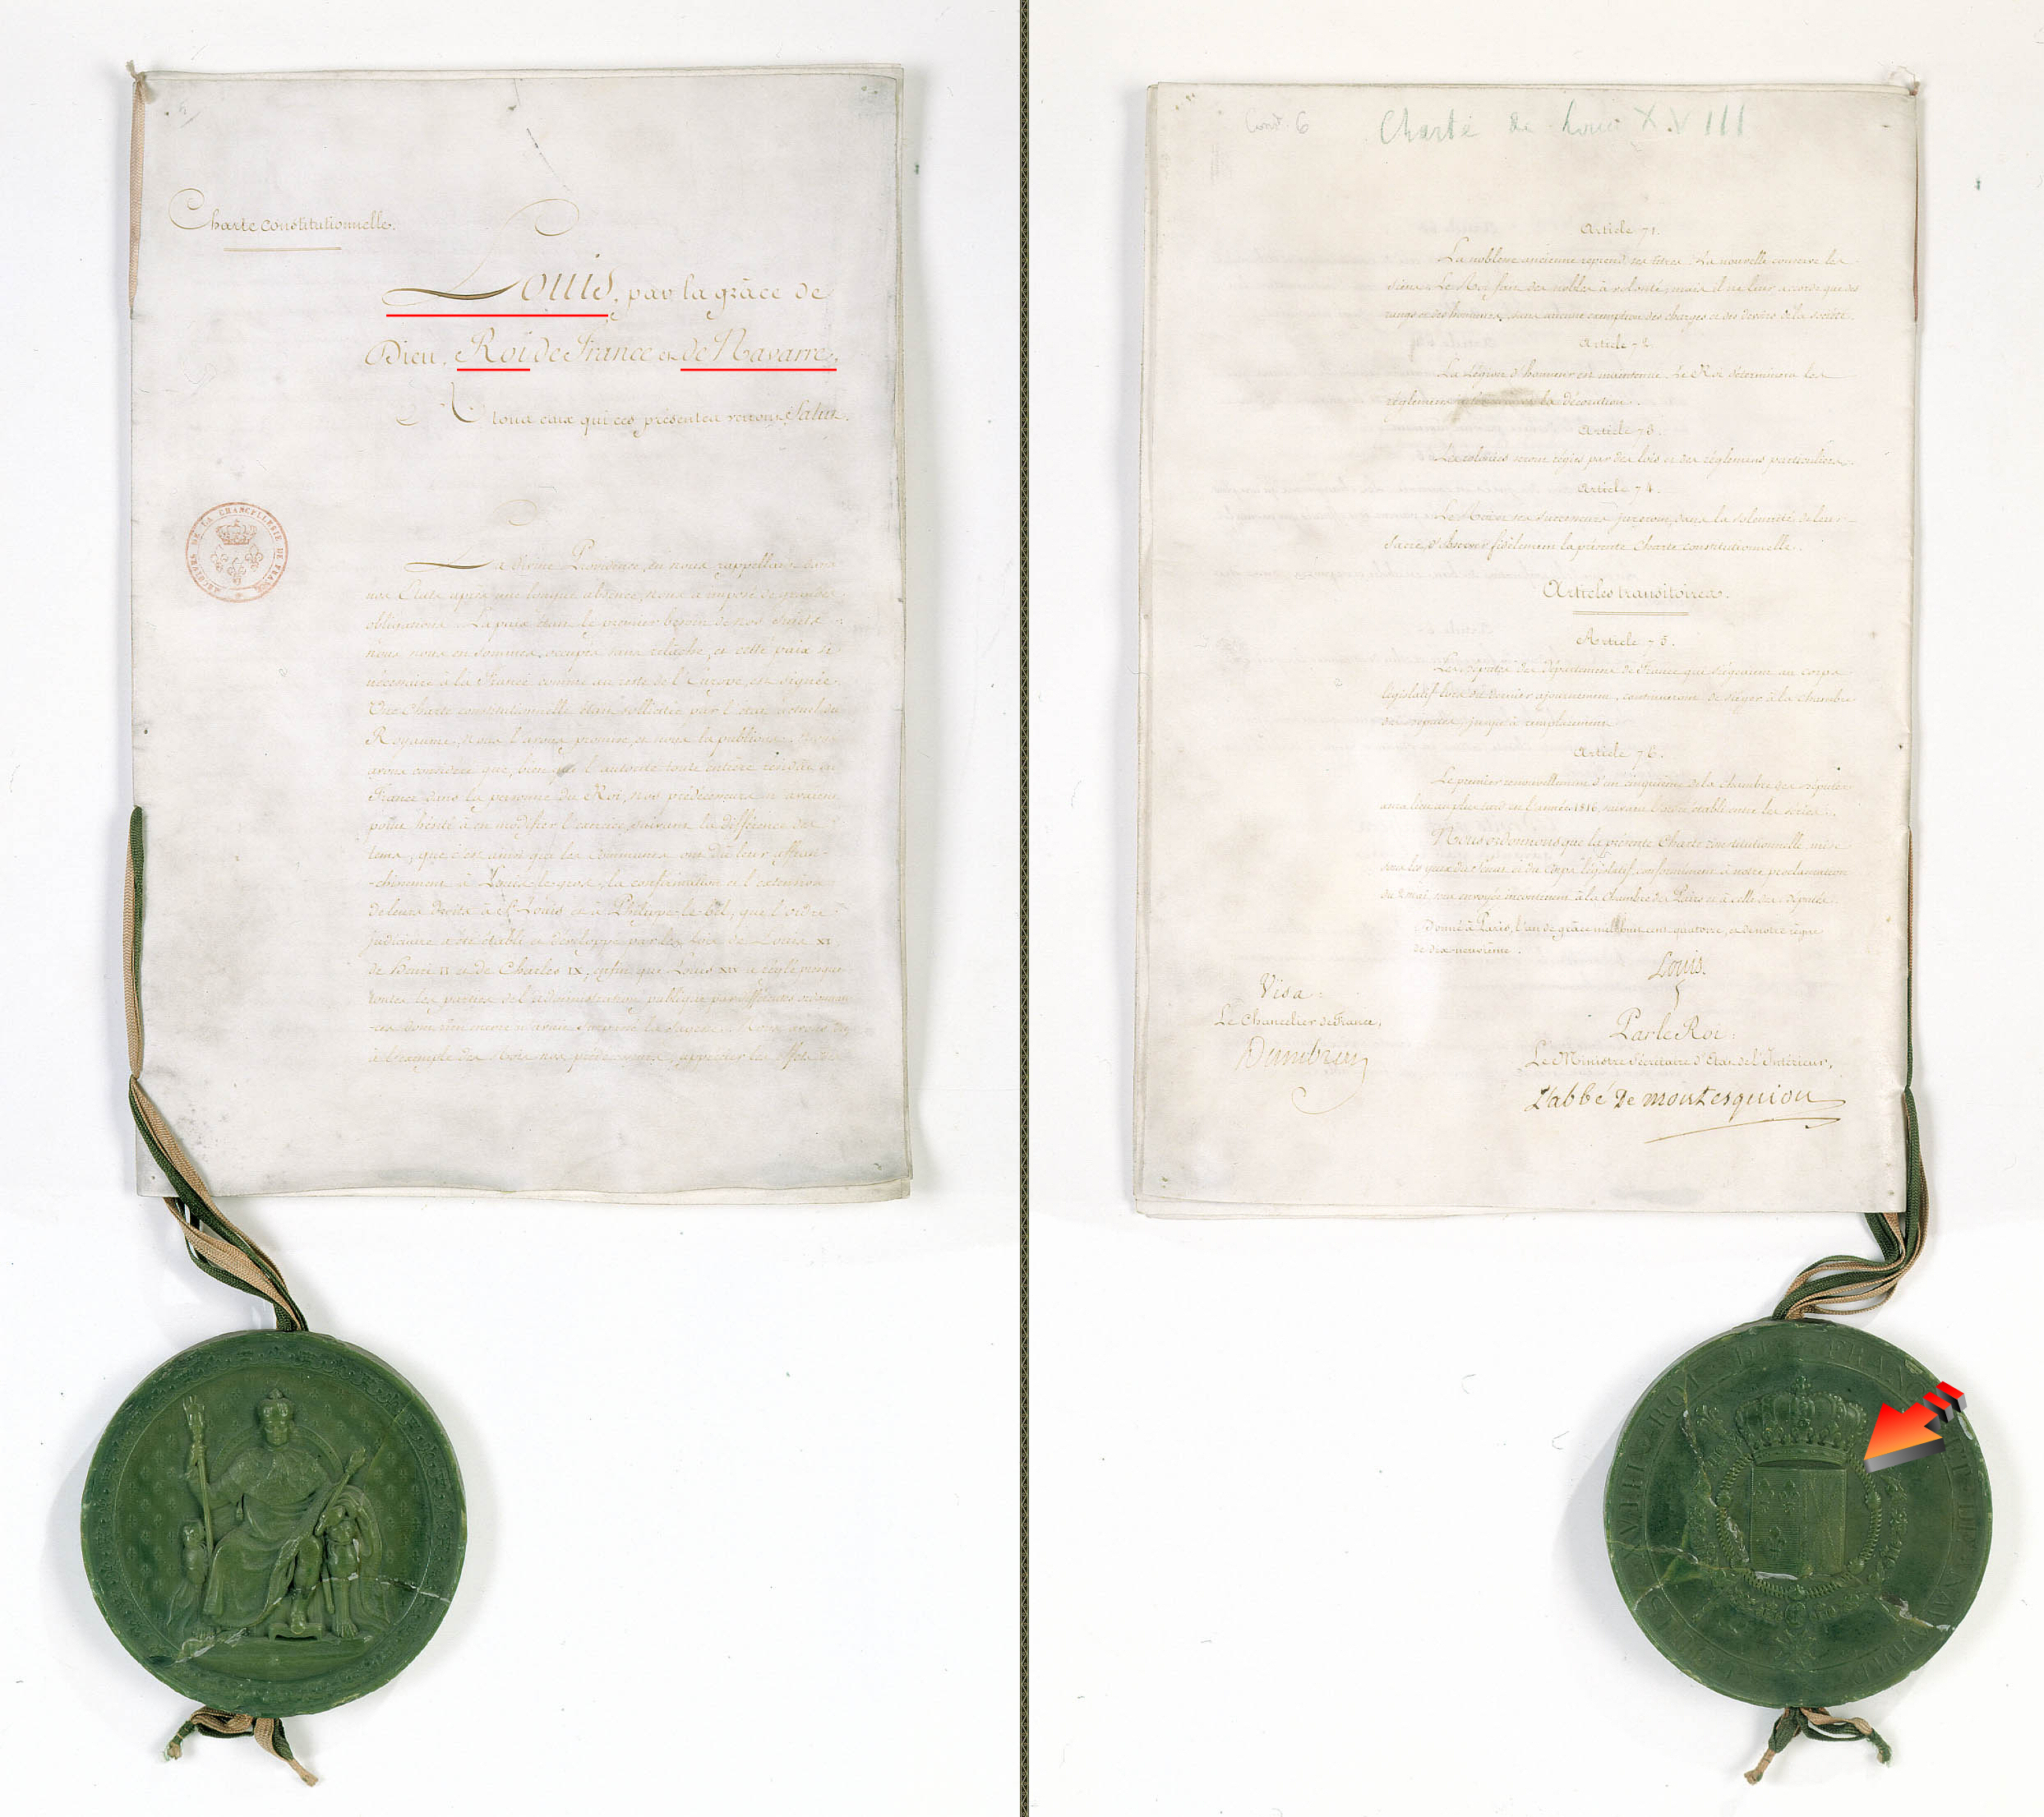 Charte constitutionnelle.
Louis, par la grâce de
Dieu, Roi de France et de Navarre,
A tous ceux qui ces présentes verront, Salut.
ARCHIVES DE LA CHANCELLERIE DE FRANCE
La divine Providence, en nous rappellant dans
nos États après une longue absence, nous a imposé de grandes
obligations. La paix était le premier besoin de nos sujets
nous nous en sommes occupés sans relâche, et cette paix si
nécessaire à la France comme au reste de l'Europe, est signée.
Une Charte constitutionnelle était sollicitée par l'état actuel du
Royaume, nous l'avons promise, et nous la publions. Nous
avons considéré que, bien que l'autorité toute entière résidât en
France dans la personne du Roi, nos prédécesseurs n'avaient
point hésité à en modifier l'exercice, suivant la différence des
tems; que c'est ainsi que les Communes ont dû leur affran-
-chissement à Louis-le-gros, la confirmation et l'extension
de leurs droits à St. Louis et à Philippe-le-bel; que l'ordre
judiciaire a été établi et développé par les lois de Louis XI
de Henri II et de Charles IX; enfin que Louis XIV a réglé presque
toutes les parties de l'administration publique par différentes ordonnan-
-ces dont rien encore n'avait surpassé la sagesse. Nous avons dû
à l'exemple des Rois nos prédécesseurs, apprécier les effets des
Cont. 6 Charte de Louis XVIII
Article 71.
La noblesse ancienne reprend ses titres. La nouvelle conserve les
siens. Le Roi fait des nobles à volonté; mais il ne leur accorde que des
rangs et des honneurs, sans aucune exemption des charges et des devoirs de la société.
Article 72.
La Légion d'honneur est maintenue. Le Roi déterminera les
réglemens intérieurs et la décoration.
Article 73.
Les colonies seront régies par des lois et des réglemens particuliers.
Article 74.
Le Roi et ses successeurs jureront, dans la solennité de leur
sacre, d'observer fidèlement la présente Charte constitutionnelle.
Articles transitoires.
Article 75.
Les députés des départemens de France qui siégeaient au corps
législatif lors du dernier ajournement, continueront de siéger à la chambre
des députés, jusqu'à remplacement.
Article 76.
Le premier renouvellement d'un cinquième de la chambre des députés
aura lieu au plus tard en l'année 1816, suivant l'ordre établi entre les séries.
Nous ordonnons que la présente Charte constitutionnelle, mise
sous les yeux du Sénat et du Corps législatif, conformément à notre proclamation
du 2 mai, sera envoyée incontinent à la Chambre des Pairs et à celle des députés.
Donné à Paris, l'an de grâce mil huit cent quatorze, et de notre règne
le dix-neuvième.
Louis.
Visa:
Le Chancelier de France,
Dambray
Par le Roi:
Le Ministre Secrétaire d'État de l'Intérieur,
L'abbé de montesquiou
XVIII ROI DE FRANCE ET DE NAVARRE